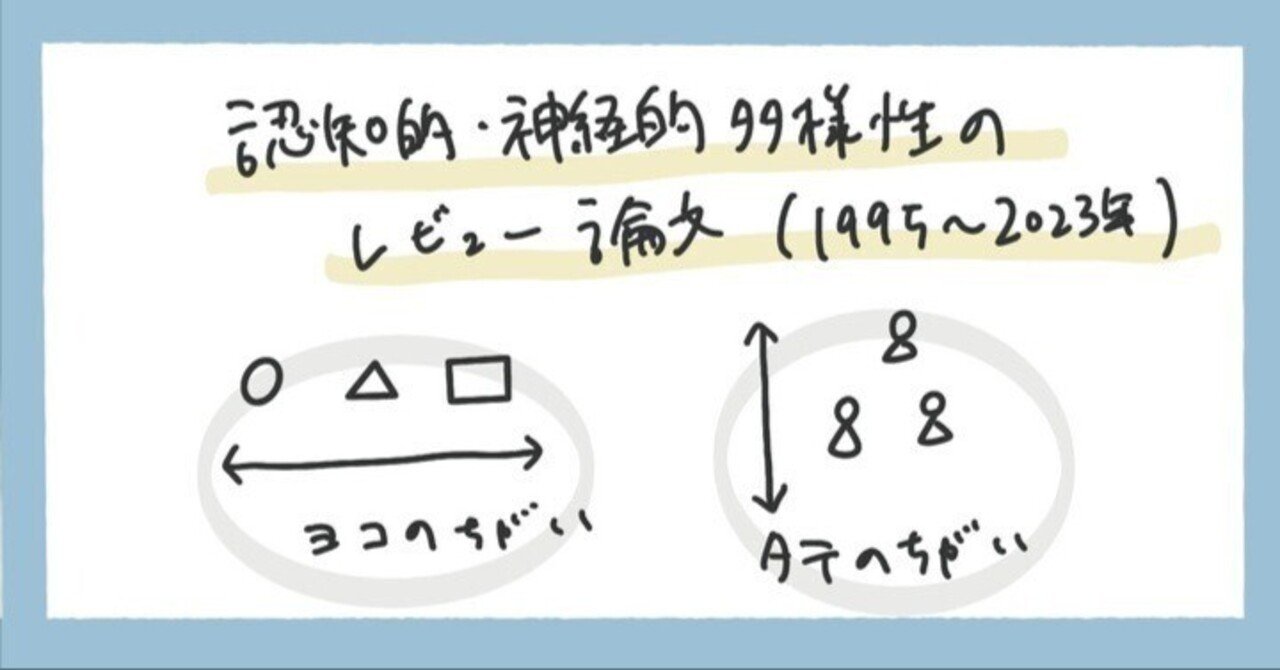 認知的・神経的多様性の
レビュー論文(1995~2023年)
ヨコのちがい
タテのちがい